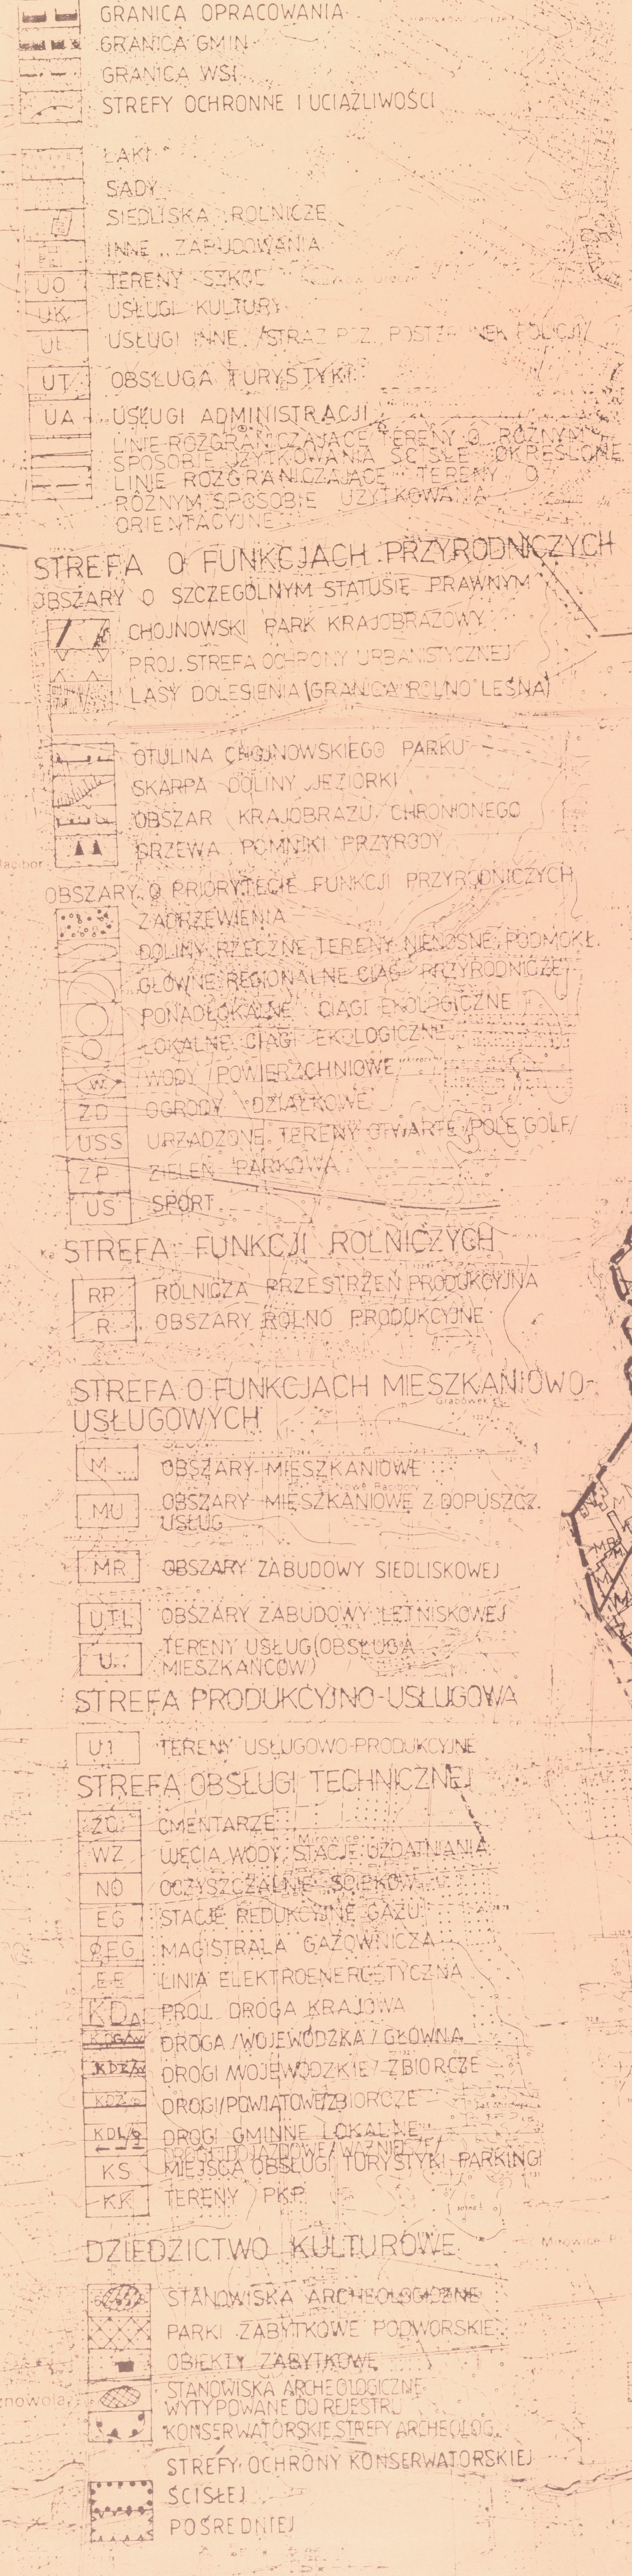 GRANICA OPRACOWANIA
GRANICA GMIN
GRANICA WSI
STREFY OCHRONNE I UCIĄŻLIWOŚCI
ŁĄKI
SADY
SIEDLISKA ROLNICZE
INNE ZABUDOWANIA
UO TERENY SZKÓŁ
UK USŁUGI KULTURY
UI USŁUGI INNE /STRAŻ POŻ. POSTERUNEK POLICJI/
UT OBSŁUGA TURYSTYKI
UA USŁUGI ADMINISTRACJI
LINIE ROZGRANICZAJĄCE TERENY O RÓŻNYM
SPOSOBIE UŻYTKOWANIA ŚCIŚLE OKREŚLONE
LINIE ROZGRANICZAJĄCE TERENY O
RÓŻNYM SPOSOBIE UŻYTKOWANIA
ORIENTACYJNE
STREFA O FUNKCJACH PRZYRODNICZYCH
OBSZARY O SZCZEGÓLNYM STATUSIE PRAWNYM
CHOJNOWSKI PARK KRAJOBRAZOWY
PROJ. STREFA OCHRONY URBANISTYCZNEJ
LASY DOLESIENIA (GRANICA ROLNO LEŚNA)
OTULINA CHOJNOWSKIEGO PARKU
SKARPA DOLINY JEZIORKI
OBSZAR KRAJOBRAZU CHRONIONEGO
DRZEWA POMNIKI PRZYRODY
OBSZARY O PRIORYTECIE FUNKCJI PRZYRODNICZYCH
ZADRZEWIENIA
DOLINY RZECZNE, TERENY NIENOŚNE, PODMOKŁ.
GŁÓWNE REGIONALNE CIĄGI PRZYRODNICZE
PONADLOKALNE CIĄGI EKOLOGICZNE
LOKALNE CIĄGI EKOLOGICZNE
W WODY /POWIERZCHNIOWE/
ZD OGRODY DZIAŁKOWE
USS URZĄDZONE TERENY OTWARTE /POLE GOLF/
ZP ZIELEŃ PARKOWA
US SPORT
STREFA FUNKCJI ROLNICZYCH
RP ROLNICZA PRZESTRZEŃ PRODUKCYJNA
R OBSZARY ROLNO PRODUKCYJNE
STREFA O FUNKCJACH MIESZKANIOWO-
Grabówek
USŁUGOWYCH
M OBSZARY MIESZKANIOWE
Nowe Racibory
MU OBSZARY MIESZKANIOWE Z DOPUSZCZ.
USŁUG
MR OBSZARY ZABUDOWY SIEDLISKOWEJ
UTL OBSZARY ZABUDOWY LETNISKOWEJ
U TERENY USŁUG (OBSŁUGA
MIESZKAŃCÓW)
STREFA PRODUKCYJNO-USŁUGOWA
TERENY USŁUGOWO-PRODUKCYJNE
STREFA OBSŁUGI TECHNICZNEJ
ZC CMENTARZE
Mirowice
WZ UJĘCIA WODY, STACJE UZDATNIANIA
NO OCZYSZCZALNIE ŚCIEKÓW
EG STACJE REDUKCYJNE GAZU
ØEG MAGISTRALA GAZOWNICZA
EE LINIA ELEKTROENERGETYCZNA
KD PROJ. DROGA KRAJOWA
DROGA /WOJEWÓDZKA/ GŁÓWNA
KDZ/W DROGI /WOJEWÓDZKIE/ ZBIORCZE
KDZ/P DROGI /POWIATOWE/ ZBIORCZE
KDL/g DROGI GMINNE LOKALNE
KS MIEJSCA OBSŁUGI TURYSTYKI PARKINGI
KK TERENY PKP
DZIEDZICTWO KULTUROWE
STANOWISKA ARCHEOLOGICZNE
PARKI ZABYTKOWE PODWORSKIE
OBIEKTY ZABYTKOWE
STANOWISKA ARCHEOLOGICZNE
WYTYPOWANE DO REJESTRU
KONSERWATORSKIE STREFY ARCHEOLOG.
STREFY OCHRONY KONSERWATORSKIEJ
ŚCISŁEJ
POŚREDNIEJ